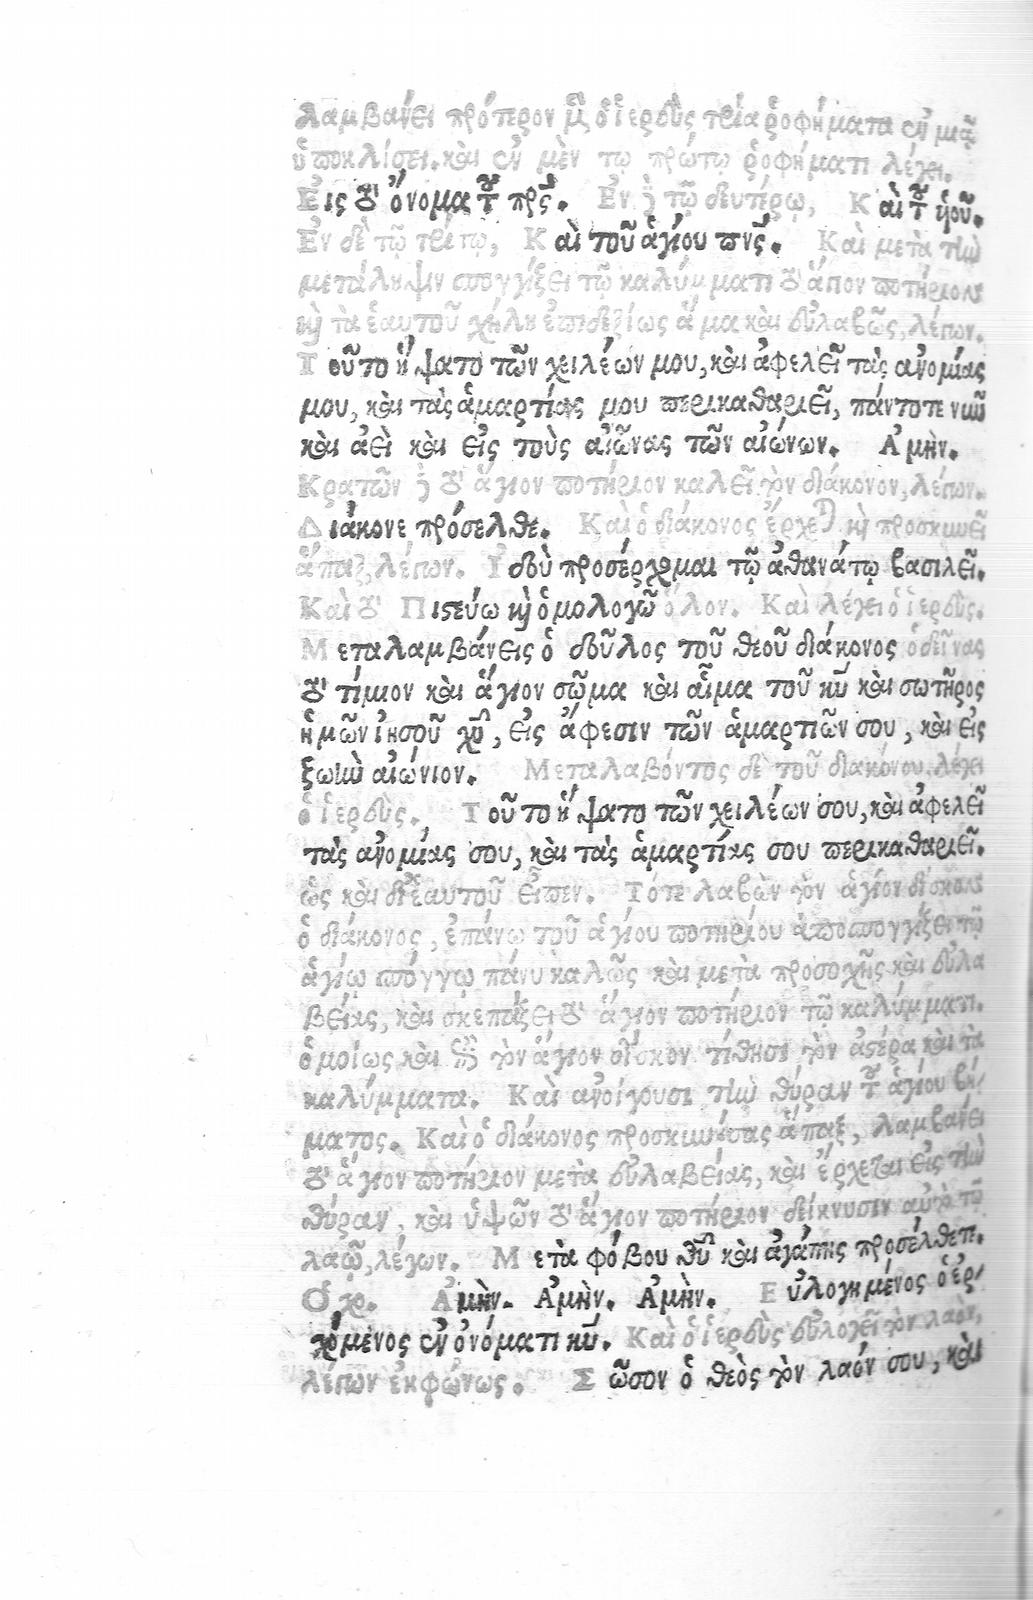 λαμβάνει πρότερον μὲν ὁ ἱερεὺς τρία ῥοφήματα ἐν μιᾷ
ὑποκλίσει. καὶ ἐν μὲν τῳ πρώτῳ ῥοφήματι λέγει.
Εἰς τὸ ὄνομα τοῦ πρς. Ἐν δὲ τῷ δευτέρῳ, Καὶ τοῦ ὑοῦ.
Ἐν δὲ τῷ τρίτῳ, Καὶ τοῦ ἁγίου πνς. Καὶ μετὰ τὴν
μετάληψιν σπογγίζει τῷ καλύμματι τὸ ἅγιον ποτήριον
καὶ τὰ ἑαυτοῦ χείλη ἐπιδεξίως ἅμα καὶ εὐλαβῶς, λέγων.
Τοῦτο ἥψατο τῶν χειλέων μου, καὶ ἀφελεῖ τὰς ἀνομίας
μου, καὶ τὰς ἁμαρτίας μου περικαθαριεῖ, πάντοτε νῦν
καὶ ἀεὶ καὶ εἰς τοὺς αἰῶνας τῶν αἰώνων. Ἀμὴν.
Κρατῶν δὲ τὸ ἅγιον ποτήριον καλεῖ τὸν διάκονον, λέγων.
Διάκονε πρόσελθε. Καὶ ὁ διάκονος ἔρχεται καὶ προσκυνεῖ
ἅπαξ, λέγων. Ἰδοὺ προσέρχομαι τῷ ἀθανάτῳ βασιλεῖ.
Καὶ τὸ Πιστεύω καὶ ὁμολογῶ ὅλον. Καὶ λέγει ὁ ἱερεὺς.
Μεταλαμβάνεις ὁ δοῦλος τοῦ θεοῦ διάκονος ὁδεῖνας
τὸ τίμιον καὶ ἅγιον σῶμα καὶ αἷμα τοῦ κυ καὶ σωτῆρος
ἡμῶν ἰησοῦ χυ, εἰς ἄφεσιν τῶν ἁμαρτιῶν σου, καὶ εἰς
ζωὴν αἰώνιον. Μεταλαβόντος δὲ τοῦ διακόνου. λέγει
ὁ ἱερεὺς. Τοῦτο ἥψατο τῶν χειλέων σου, καὶ ἀφελεῖ
τὰς ἀνομίας σου, καὶ τὰς ἁμαρτίας σου περικαθαριεῖ.
ὡς καὶ δι' ἑαυτοῦ εἶπεν. Τότε λαβὼν τὸν ἅγιον δίσκον
ὁ διάκονος, ἐπάνω τοῦ ἁγίου ποτηρίου ἀποσπογγίζει τῷ
ἁγίῳ σπόγγῳ πάνυ καλῶς καὶ μετὰ προσοχῆς καὶ εὐλα
βείας, καὶ σκεπάζει τὸ ἅγιον ποτήριον τῷ καλύμματι.
ὁμοίως καὶ ἐπὶ τὸν ἅγιον δίσκον τίθησι τὸν ἀστέρα καὶ τὰ
καλύμματα. Καὶ ἀνοίγουσι τὴν θύραν τοῦ ἁγίου βή-
ματος. Καὶ ὁ διάκονος προσκυνήσας ἅπαξ, λαμβάνει
τὸ ἅγιον ποτήριον μετὰ εὐλαβείας, καὶ ἔρχεται εἰς τὴν
θύραν, καὶ ὑψῶν τὸ ἅγιον ποτήριον δείκνυσιν αὐτὸ τῷ
λαῷ, λέγων. Μετὰ φόβου θυ καὶ ἀγάπης προσέλθετε.
Ὁ χο. Ἀμὴν. Ἀμὴν. Ἀμὴν. Εὐλογημένος ὁ ἐρ-
χόμενος ἐν ὀνόματι κυ. Καὶ ὁ ἱερεὺς εὐλογεῖ τὸν λαὸν,
λέγων ἐκφώνως. Σῶσον ὁ θεὸς τὸν λαόν σου, καὶ